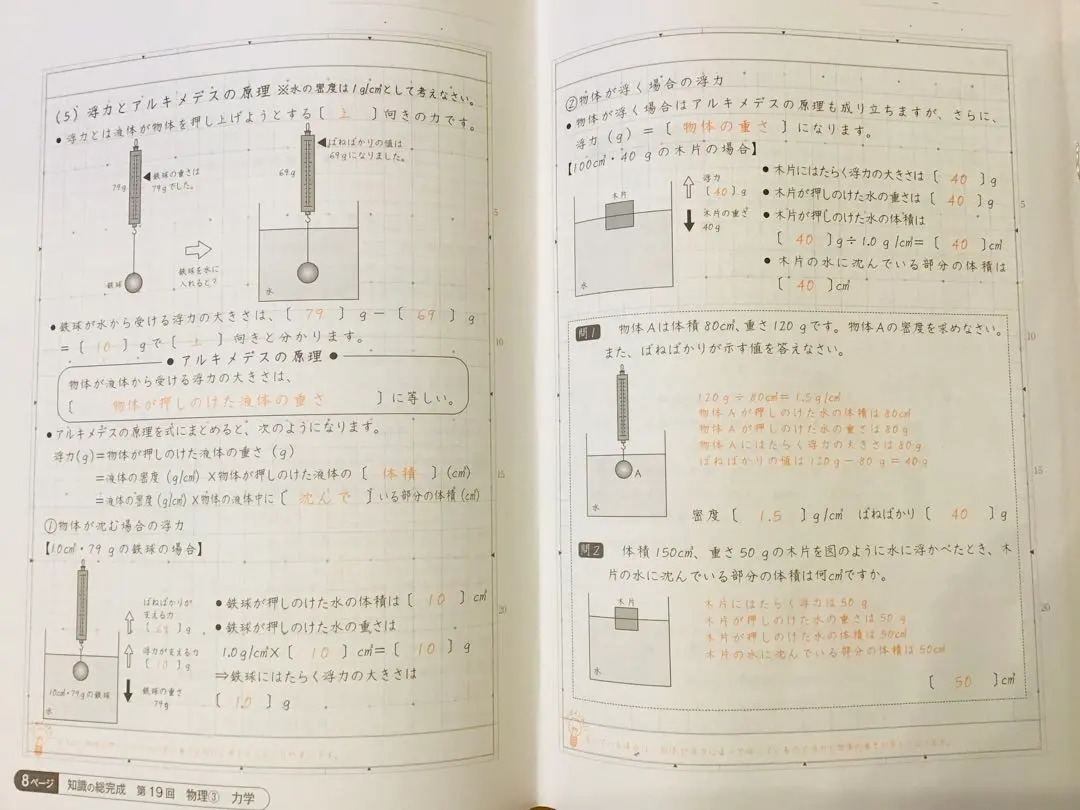 (5) 浮力とアルキメデスの原理 ※水の密度は1g/cm³として考えなさい。
●浮力とは液体が物体を押し上げようとする〔 上 〕向きの力です。
79g
◀鉄球の重さは
79gでした。
鉄球
鉄球を水に
入れると?
◀ばねばかりの値は
69gになりました。
69g
水
5
●鉄球が水から受ける浮力の大きさは、〔 79 〕g－〔 69 〕g
＝〔 10 〕gで〔 上 〕向きと分かります。
10
●アルキメデスの原理●
物体が液体から受ける浮力の大きさは、
〔 物体が押しのけた液体の重さ 〕に等しい。
●アルキメデスの原理を式にまとめると、次のようになります。
浮力(g)＝物体が押しのけた液体の重さ(g)
＝液体の密度(g/cm³)×物体が押しのけた液体の〔 体積 〕(cm³)
15
＝液体の密度(g/cm³)×物体の液体中に〔 沈んで 〕いる部分の体積(cm³)
①物体が沈む場合の浮力
【10cm³・79gの鉄球の場合】
ばねばかりが
支える力
〔 69 〕g
浮力が支える力
〔 10 〕g
鉄球の重さ
79g
10cm³・79gの鉄球
水
●鉄球が押しのけた水の体積は〔 10 〕cm³
20
●鉄球が押しのけた水の重さは
1.0g/cm³×〔 10 〕cm³＝〔 10 〕g
⇒鉄球にはたらく浮力の大きさは
〔 1.0 〕g
8ページ 知識の総完成 第19回 物理③ 力学
②物体が浮く場合の浮力
●物体が浮く場合はアルキメデスの原理も成り立ちますが、さらに、
浮力(g)＝〔 物体の重さ 〕になります。
【100cm³・40gの木片の場合】
木片
水
浮力
〔 40 〕g
木片の重さ
40g
●木片にはたらく浮力の大きさは〔 40 〕g
●木片が押しのけた水の重さは〔 40 〕g
5
●木片が押しのけた水の体積は
〔 40 〕g÷1.0g/cm³＝〔 40 〕cm³
●木片の水に沈んでいる部分の体積は
〔 40 〕cm³
問1 物体Aは体積80cm³、重さ120gです。物体Aの密度を求めなさい。
10
また、ばねばかりが示す値を答えなさい。
A
水
120g÷80cm³＝1.5g/cm³
物体Aが押しのけた水の体積は80cm³
物体Aが押しのけた水の重さは80g
物体Aにはたらく浮力の大きさは80g
ばねばかりの値は120g－80g＝40g
15
密度〔 1.5 〕g/cm³ ばねばかり〔 40 〕g
問2 体積150cm³、重さ50gの木片を図のように水に浮かべたとき、木
片の水に沈んでいる部分の体積は何cm³ですか。
木片
水
木片にはたらく浮力は50g
20
木片が押しのけた水の重さは50g
木片が押しのけた水の体積は50cm³
木片の水に沈んでいる部分の体積は50cm³
〔 50 〕cm³